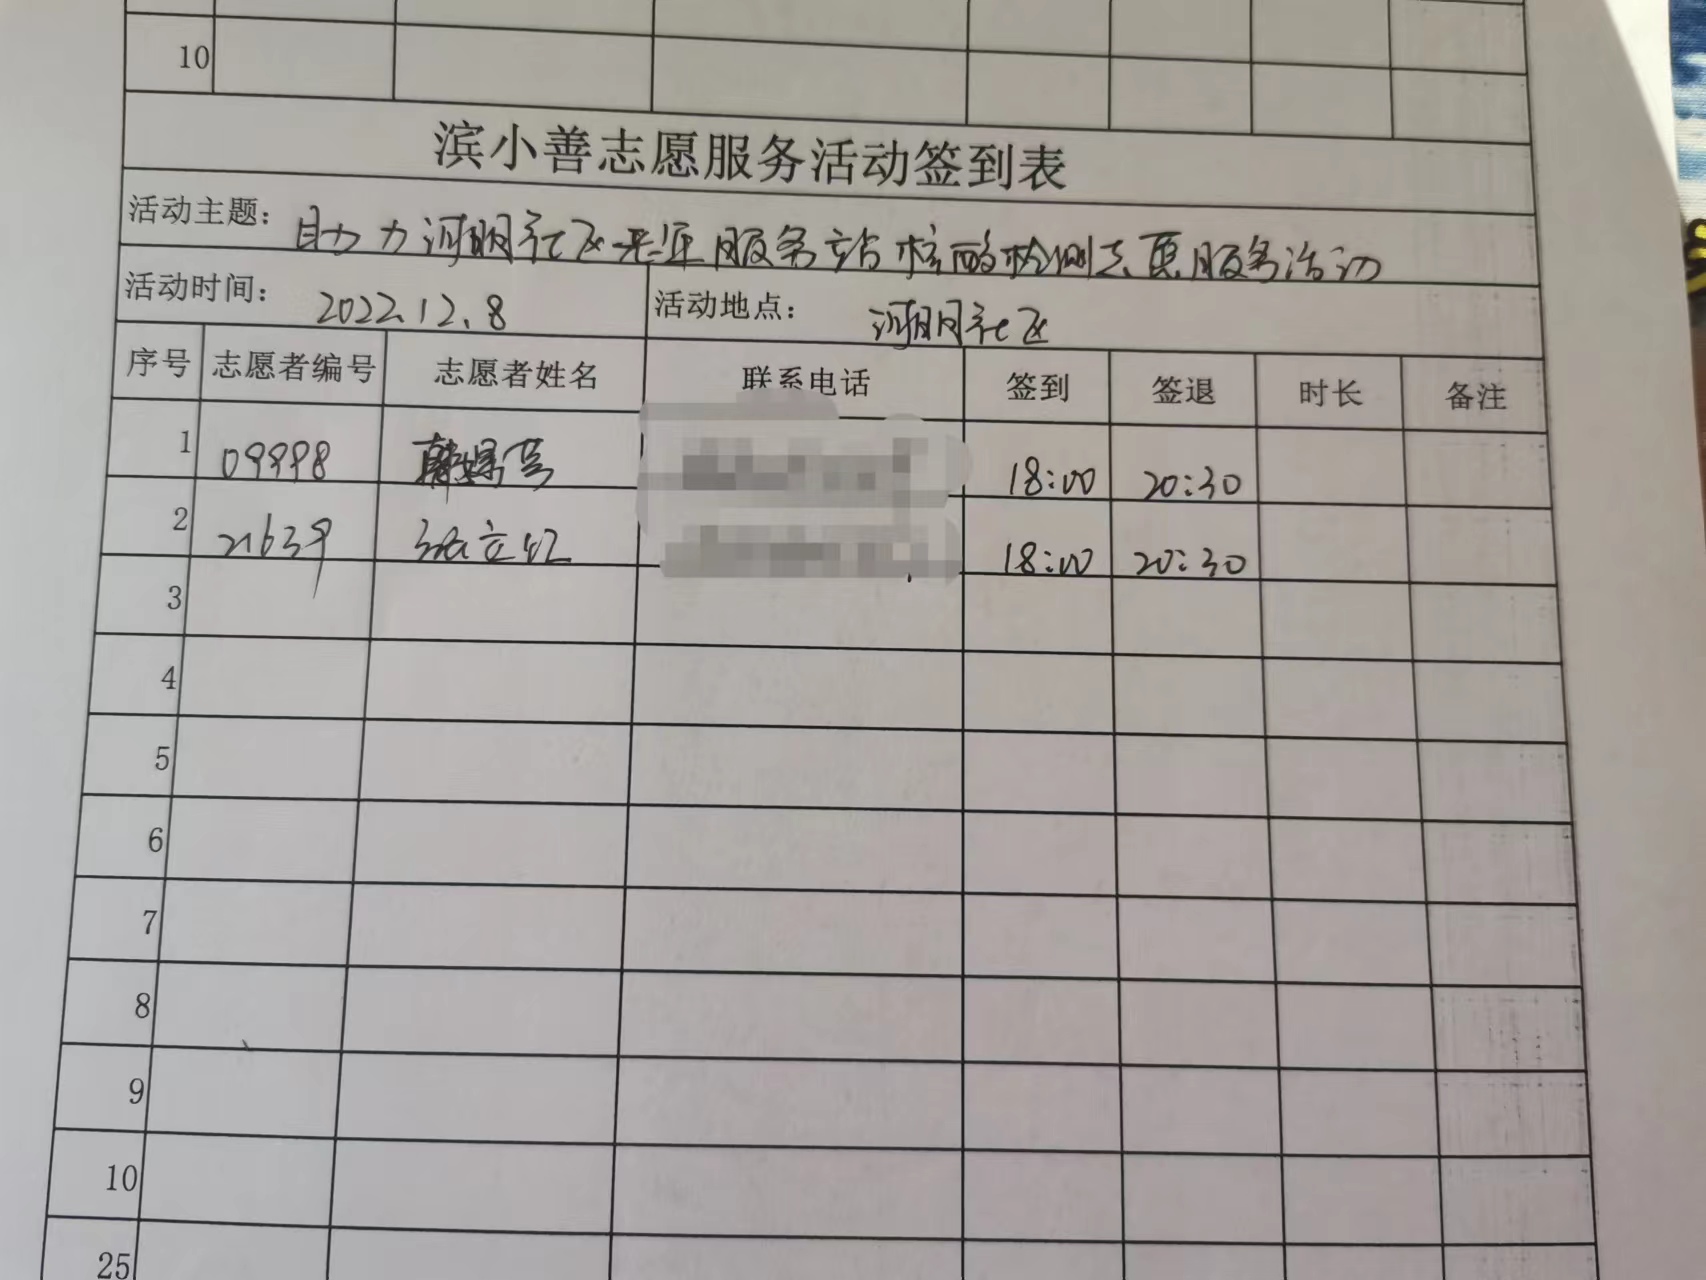 10
滨小善志愿服务活动签到表
活动主题: 助力河明社区老年服务站核酸检测志愿服务活动
活动时间: 2022.12.8 活动地点: 河明社区
序号 志愿者编号 志愿者姓名 联系电话 签到 签退 时长 备注
1 09998 18:00 20:30
2 21639 18:00 20:30
3
4
5
6
7
8
9
10
25